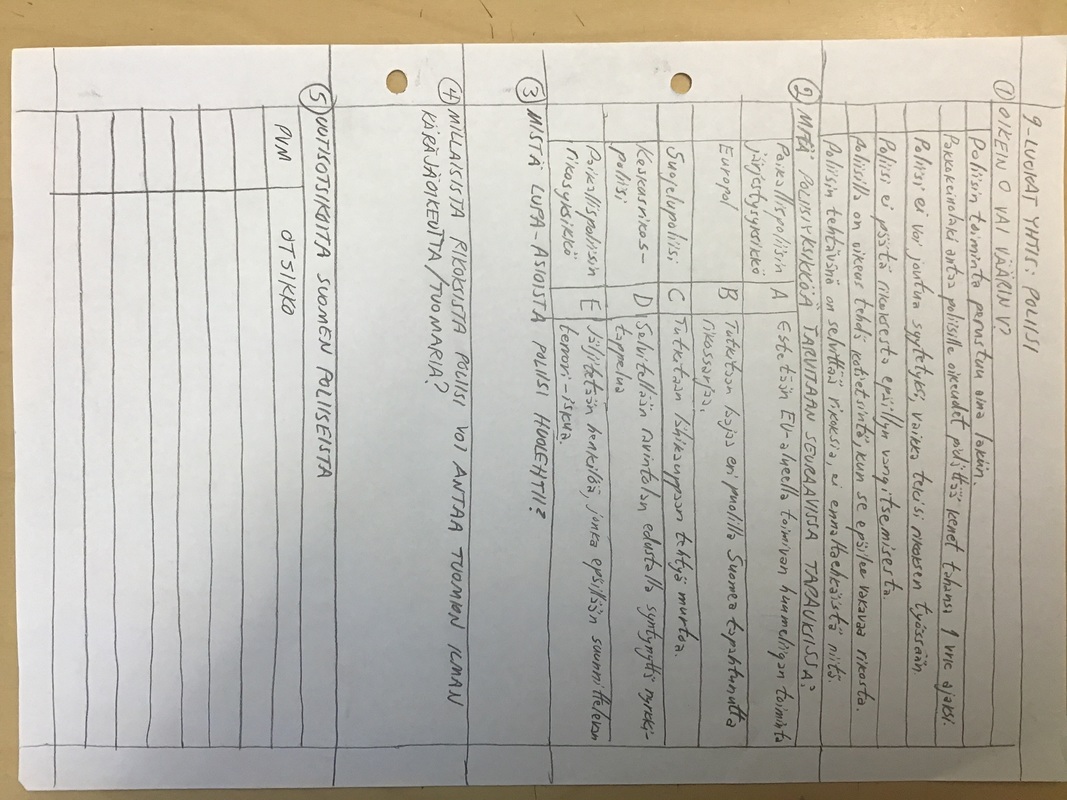 9-LUOKAT YHTS: POLIISI
① OIKEIN O VAI VÄÄRIN V?
Poliisin toiminta perustuu aina lakiin.
Pakkokeinolaki antaa poliisille oikeudet pidättää kenet tahansa 1 vrk ajaksi.
Poliisi ei voi joutua syytetyksi, vaikka tekisi rikoksen työssään.
Poliisi ei päätä rikoksesta epäillyn vangitsemisesta.
Poliisilla on oikeus tehdä kotietsintä, kun se epäilee vakavaa rikosta.
Poliisin tehtävänä on selvittää rikoksia, ei ennaltaehkäistä niitä.
② MITÄ POLIISIYKSIKKÖÄ TARVITAAN SEURAAVISSA TAPAUKSISSA?
Paikallispoliisin järjestysyksikkö
A
Estetään EU-alueella toimivan huumeliigan toiminta
Europol
B
Tutkitaan laajaa eri puolilla Suomea tapahtunutta
rikossarjaa.
Suojelupoliisi
C
Tutkitaan lähikauppaan tehtyä murtoa.
Keskusrikos-
poliisi
D
Selvitellään ravintolan edustalla syntynyttä nyrkki-
tappelua
Paikallispoliisin
rikosyksikkö
E
Jäljitetään henkilöä, jonka epäillään suunnittelevan
terrori-iskua.
③ MISTÄ LUPA-ASIOISTA POLIISI HUOLEHTII?
④ MILLAISISTA RIKOKSISTA POLIISI VOI ANTAA TUOMION ILMAN
KÄRÄJÄOIKEUTTA/TUOMARIA?
⑤ UUTISOTSIKOITA SUOMEN POLIISEISTA
PVM OTSIKKO